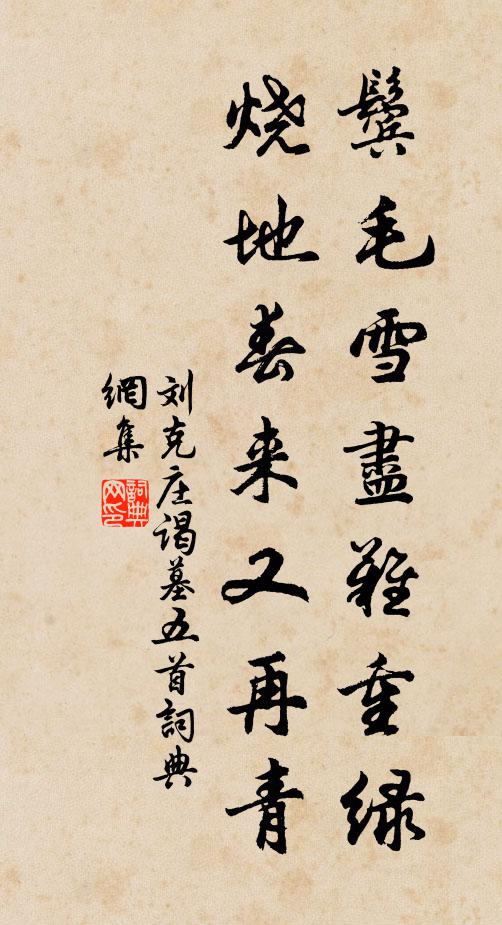 鬓毛雪盡難重绿
烧地春来又再青
刘克庄谒墓五首詞典
網集
詞典
网印